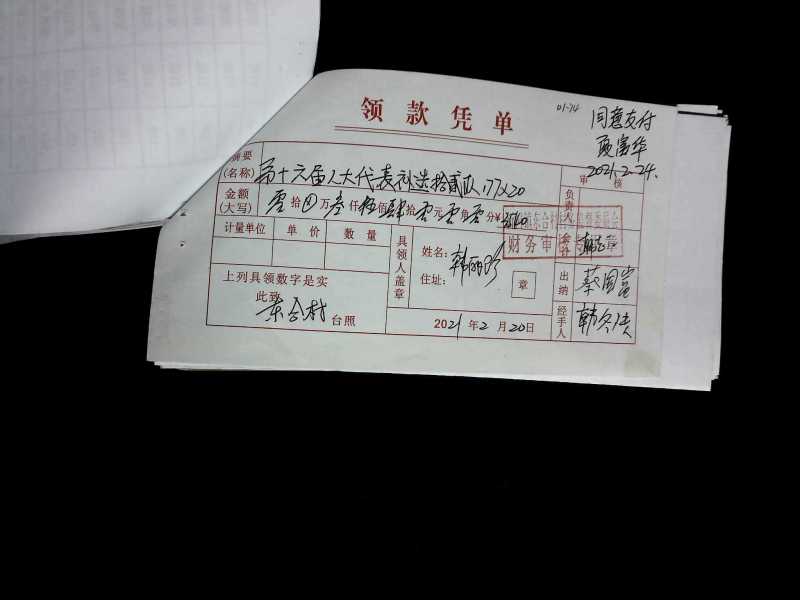 领款凭单
01-74
同意支付
2021.2.24.
摘要
(名称) 第十六届人大代表补选拾贰队 177×20
审核
负责人
金额
(大写) 零拾 万叁仟伍佰肆拾零元零角零分¥3540
财务审 专 章
计量单位 单价 数量
具领人盖章
姓名: 韩丽珍
住址: 章
会计
上列具领数字是实
此致
东合村 台照
2021年2月20日
出纳 蔡国富
经手人